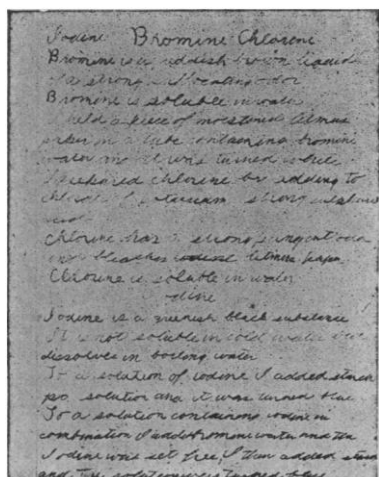 Iodine Bromine Chlorine
Bromine is a reddish brown liquid
strong suffocating odor
Bromine is soluble in water
held a piece of moistened litmus
paper in a tube containing bromine
water and it was turned white
I prepared chlorine by adding to
strong
Chlorine has a strong pungent odor
bleaches litmus paper
Chlorine is soluble in water
Iodine is a black substance
It is not soluble in cold water
dissolves in boiling water
To a solution of iodine I added starch
solution and it was turned blue
To a solution containing iodine in
combination I added bromine water and the
Iodine was set free, I then added starch
and the solution was turned blue